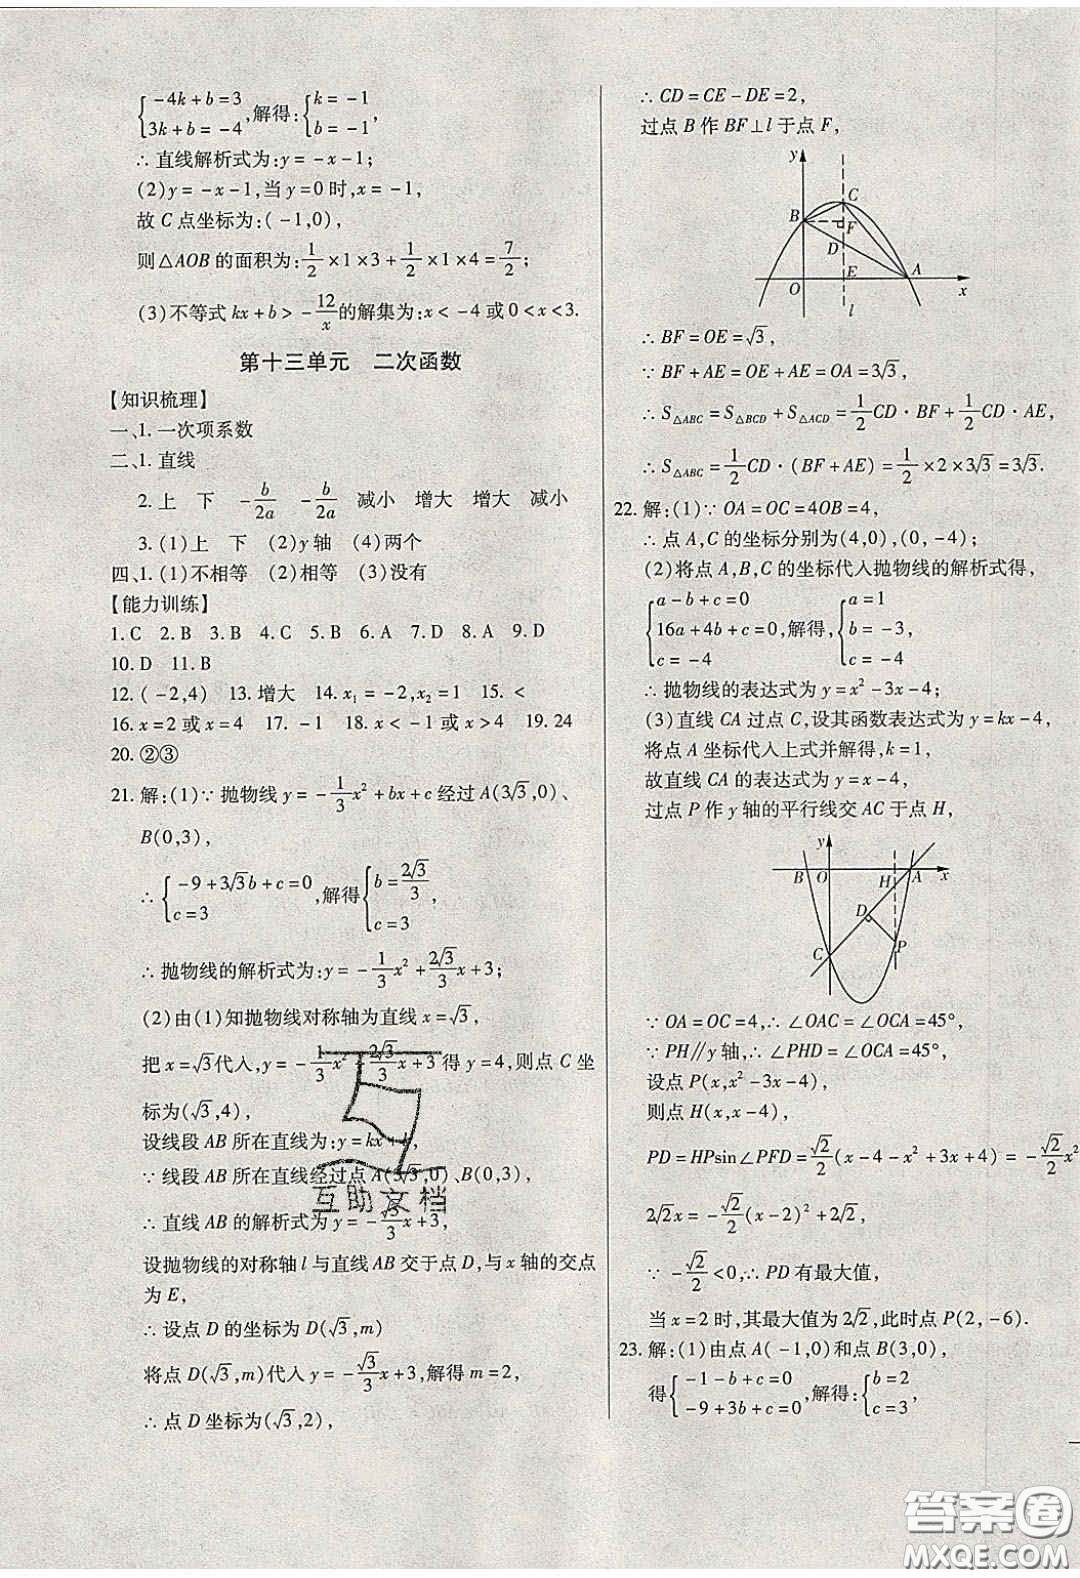 {-4k+b=3
3k+b=-4 ,解得:{k=-1
b=-1 ,
∴直线解析式为:y=-x-1;
(2)y=-x-1,当y=0时,x=-1,
故C点坐标为:(-1,0),
则△AOB的面积为:1/2×1×3+1/2×1×4=7/2;
(3)不等式kx+b>-12/x的解集为:x<-4或0<x<3.
第十三单元 二次函数
【知识梳理】
一、1.一次项系数
二、1.直线
2.上 下 -b/2a -b/2a 减小 增大 增大 减小
3.(1)上 下 (2)y轴 (4)两个
四、1.(1)不相等 (2)相等 (3)没有
【能力训练】
1.C 2.B 3.B 4.C 5.B 6.A 7.D 8.A 9.D
10.D 11.B
12.(-2,4) 13.增大 14.x₁=-2,x₂=1 15.<
16.x=2或x=4 17.-1 18.x<-1或x>4 19.24
20.②③
21.解:(1)∵抛物线y=-1/3x²+bx+c经过A(3√3,0)、
B(0,3),
∴{-9+3√3b+c=0
c=3 ,解得{b=2√3/3
c=3 ,
∴抛物线的解析式为:y=-1/3x²+2√3/3x+3;
(2)由(1)知抛物线对称轴为直线x=√3,
把x=√3代入,y=-1/3x²+2√3/3x+3得y=4,则点C坐
标为(√3,4),
设线段AB所在直线为:y=kx+b,
∵线段AB所在直线经过点A(3√3,0)、B(0,3),
∴直线AB的解析式为y=-√3/3x+3,
互助文档
设抛物线的对称轴l与直线AB交于点D,与x轴的交点
为E,
∴设点D的坐标为D(√3,m)
将点D(√3,m)代入y=-√3/3x+3,解得m=2,
∴点D坐标为(√3,2),
∴CD=CE-DE=2,
过点B作BF⊥l于点F,
y
C
B
F
D
E
A
O
x
l
∴BF=OE=√3,
∵BF+AE=OE+AE=OA=3√3,
∴S△ABC=S△BCD+S△ACD=1/2CD·BF+1/2CD·AE,
∴S△ABC=1/2CD·(BF+AE)=1/2×2×3√3=3√3.
22.解:(1)∵OA=OC=4OB=4,
∴点A,C的坐标分别为(4,0),(0,-4);
(2)将点A,B,C的坐标代入抛物线的解析式得,
{a-b+c=0
16a+4b+c=0
c=-4 ,解得,{a=1
b=-3
c=-4 ,
∴抛物线的表达式为y=x²-3x-4;
(3)直线CA过点C,设其函数表达式为y=kx-4,
将点A坐标代入上式并解得,k=1,
故直线CA的表达式为y=x-4,
过点P作y轴的平行线交AC于点H,
y
B
O
H
A
x
D
P
C
∵OA=OC=4,∴∠OAC=∠OCA=45°,
∵PH∥y轴,∴∠PHD=∠OCA=45°,
设点P(x,x²-3x-4),
则点H(x,x-4),
PD=HPsin∠PFD=√2/2(x-4-x²+3x+4)=-√2/2x²
2√2x=-√2/2(x-2)²+2√2,
∵-√2/2<0,∴PD有最大值,
当x=2时,其最大值为2√2,此时点P(2,-6).
23.解:(1)由点A(-1,0)和点B(3,0),
得{-1-b+c=0
-9+3b+c=0 ,解得:{b=2
c=3 ,
答案圈
MXQE.COM